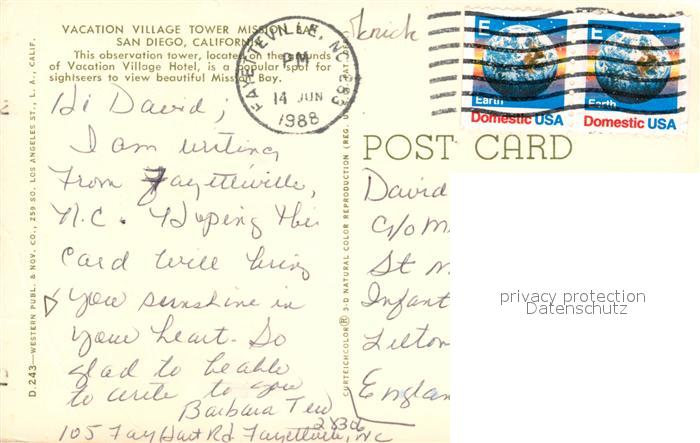 VACATION VILLAGE TOWER MISSION BAY
SAN DIEGO, CALIFORNIA
This observation tower, located on the grounds
of Vacation Village Hotel, is a popular spot for
sightseers to view beautiful Mission Bay.
Hi David;
I am writing
From Fayetteville,
N.C. Hoping this
Card will bring
you sunshine in
your heart. So
glad to be able
to write to you
Barbara Tew
105 Fay Hart Rd Fayetteville, NC
28306
D.243—WESTERN PUBL. & NOV. CO., 259 SO. LOS ANGELES ST., L. A., CALIF.
CURTEICHCOLOR® 3-D NATURAL COLOR REPRODUCTION (REG. U
FAYETTEVILLE, NC 283
PM
14 JUN
1988
E
Earth
Domestic USA
E
Earth
Domestic USA
POST CARD
David
c/o M
St
Infant
England
privacy protection
Datenschutz